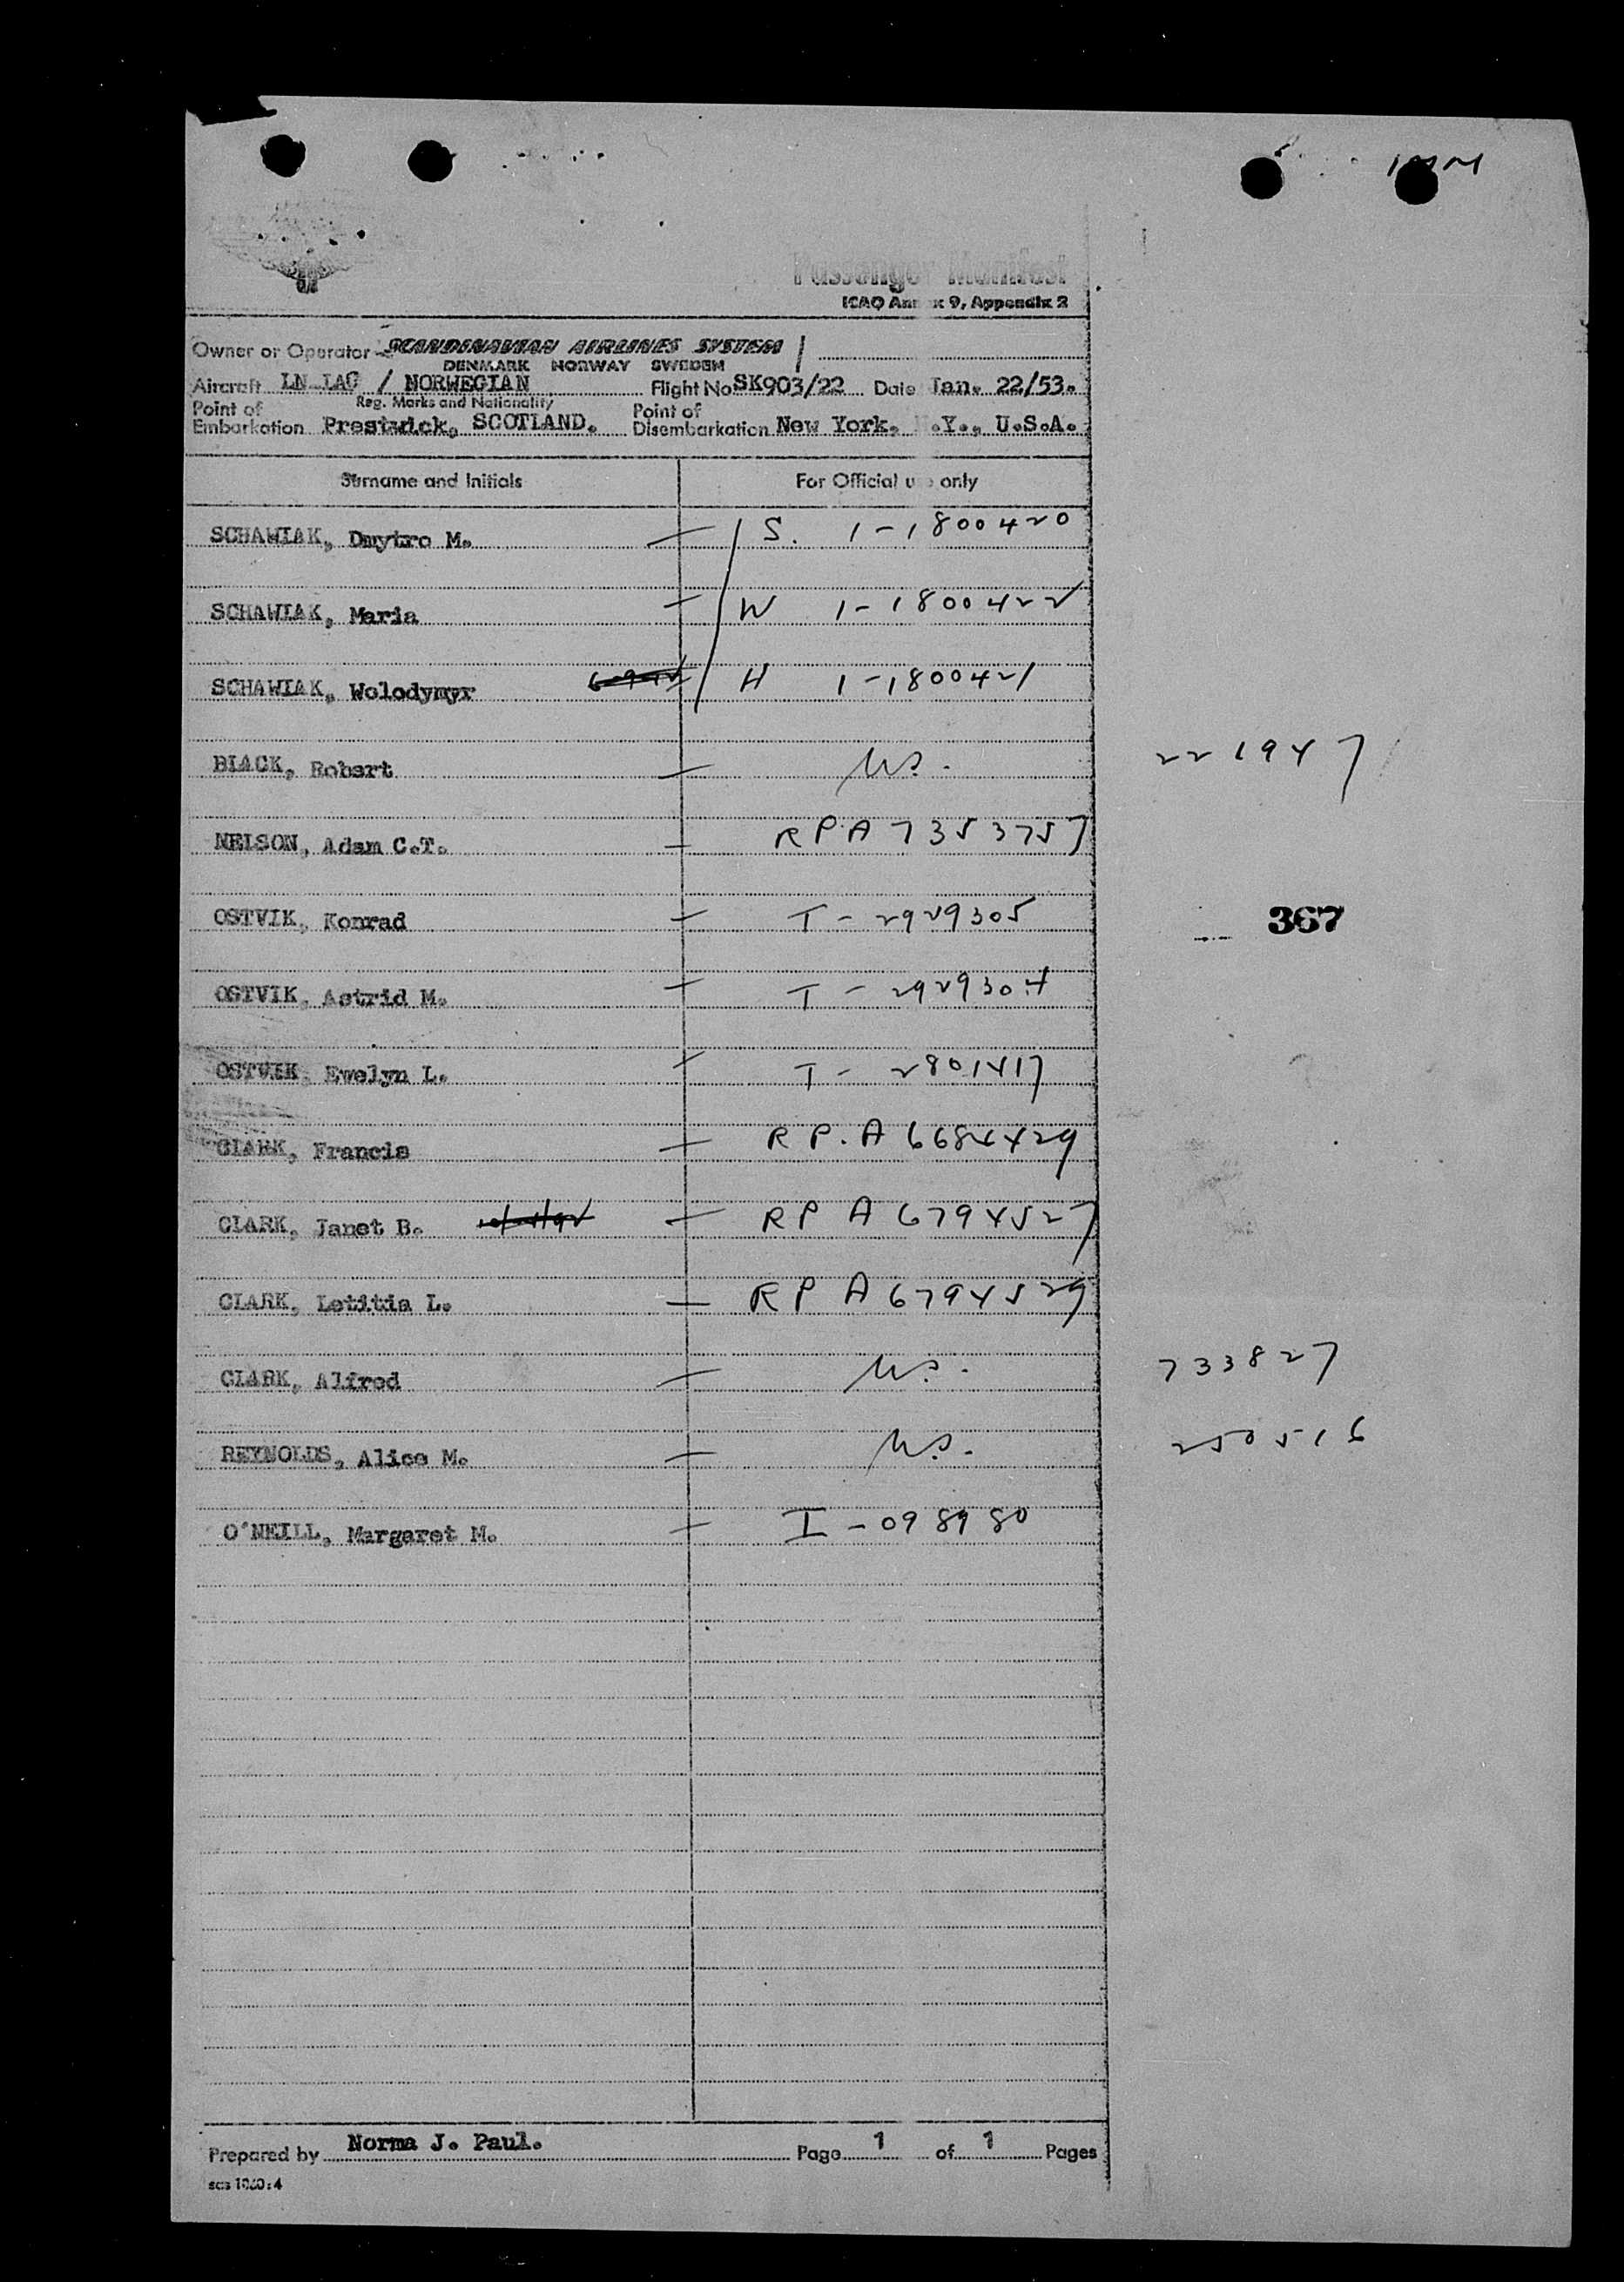 IMM
Passenger Manifest
ICAO Annex 9, Appendix 2
Owner or Operator SCANDINAVIAN AIRLINES SYSTEM
DENMARK NORWAY SWEDEN
Aircraft LN-LAG / NORWEGIAN Flight No SK903/22 Date Jan. 22/53.
Reg. Marks and Nationality
Point of Embarkation Prestwick, SCOTLAND. Point of Disembarkation New York, N.Y., U.S.A.
Surname and Initials For Official use only
SCHAWIAK, Dmytro M. — S. 1-1800420
SCHAWIAK, Maria — W 1-1800422
SCHAWIAK, Wolodymyr — H 1-1800421
BLACK, Robert — US. 221947
NELSON, Adam C.T. — RP.A7353757
OSTVIK, Konrad — T - 2929305 367
OSTVIK, Astrid M. — T - 2929304
OSTVIK, Ewelyn L. — T - 2801417
CLARK, Francis — RP.A6684429
CLARK, Janet B. — RP A6794527
CLARK, Letitia L. — RP A6794529
CLARK, Alfred — US. 733827
REYNOLDS, Alice M. — US. 250516
O'NEILL, Margaret M. — I-098980
Prepared by Norma J. Paul. Page 1 of 1 Pages